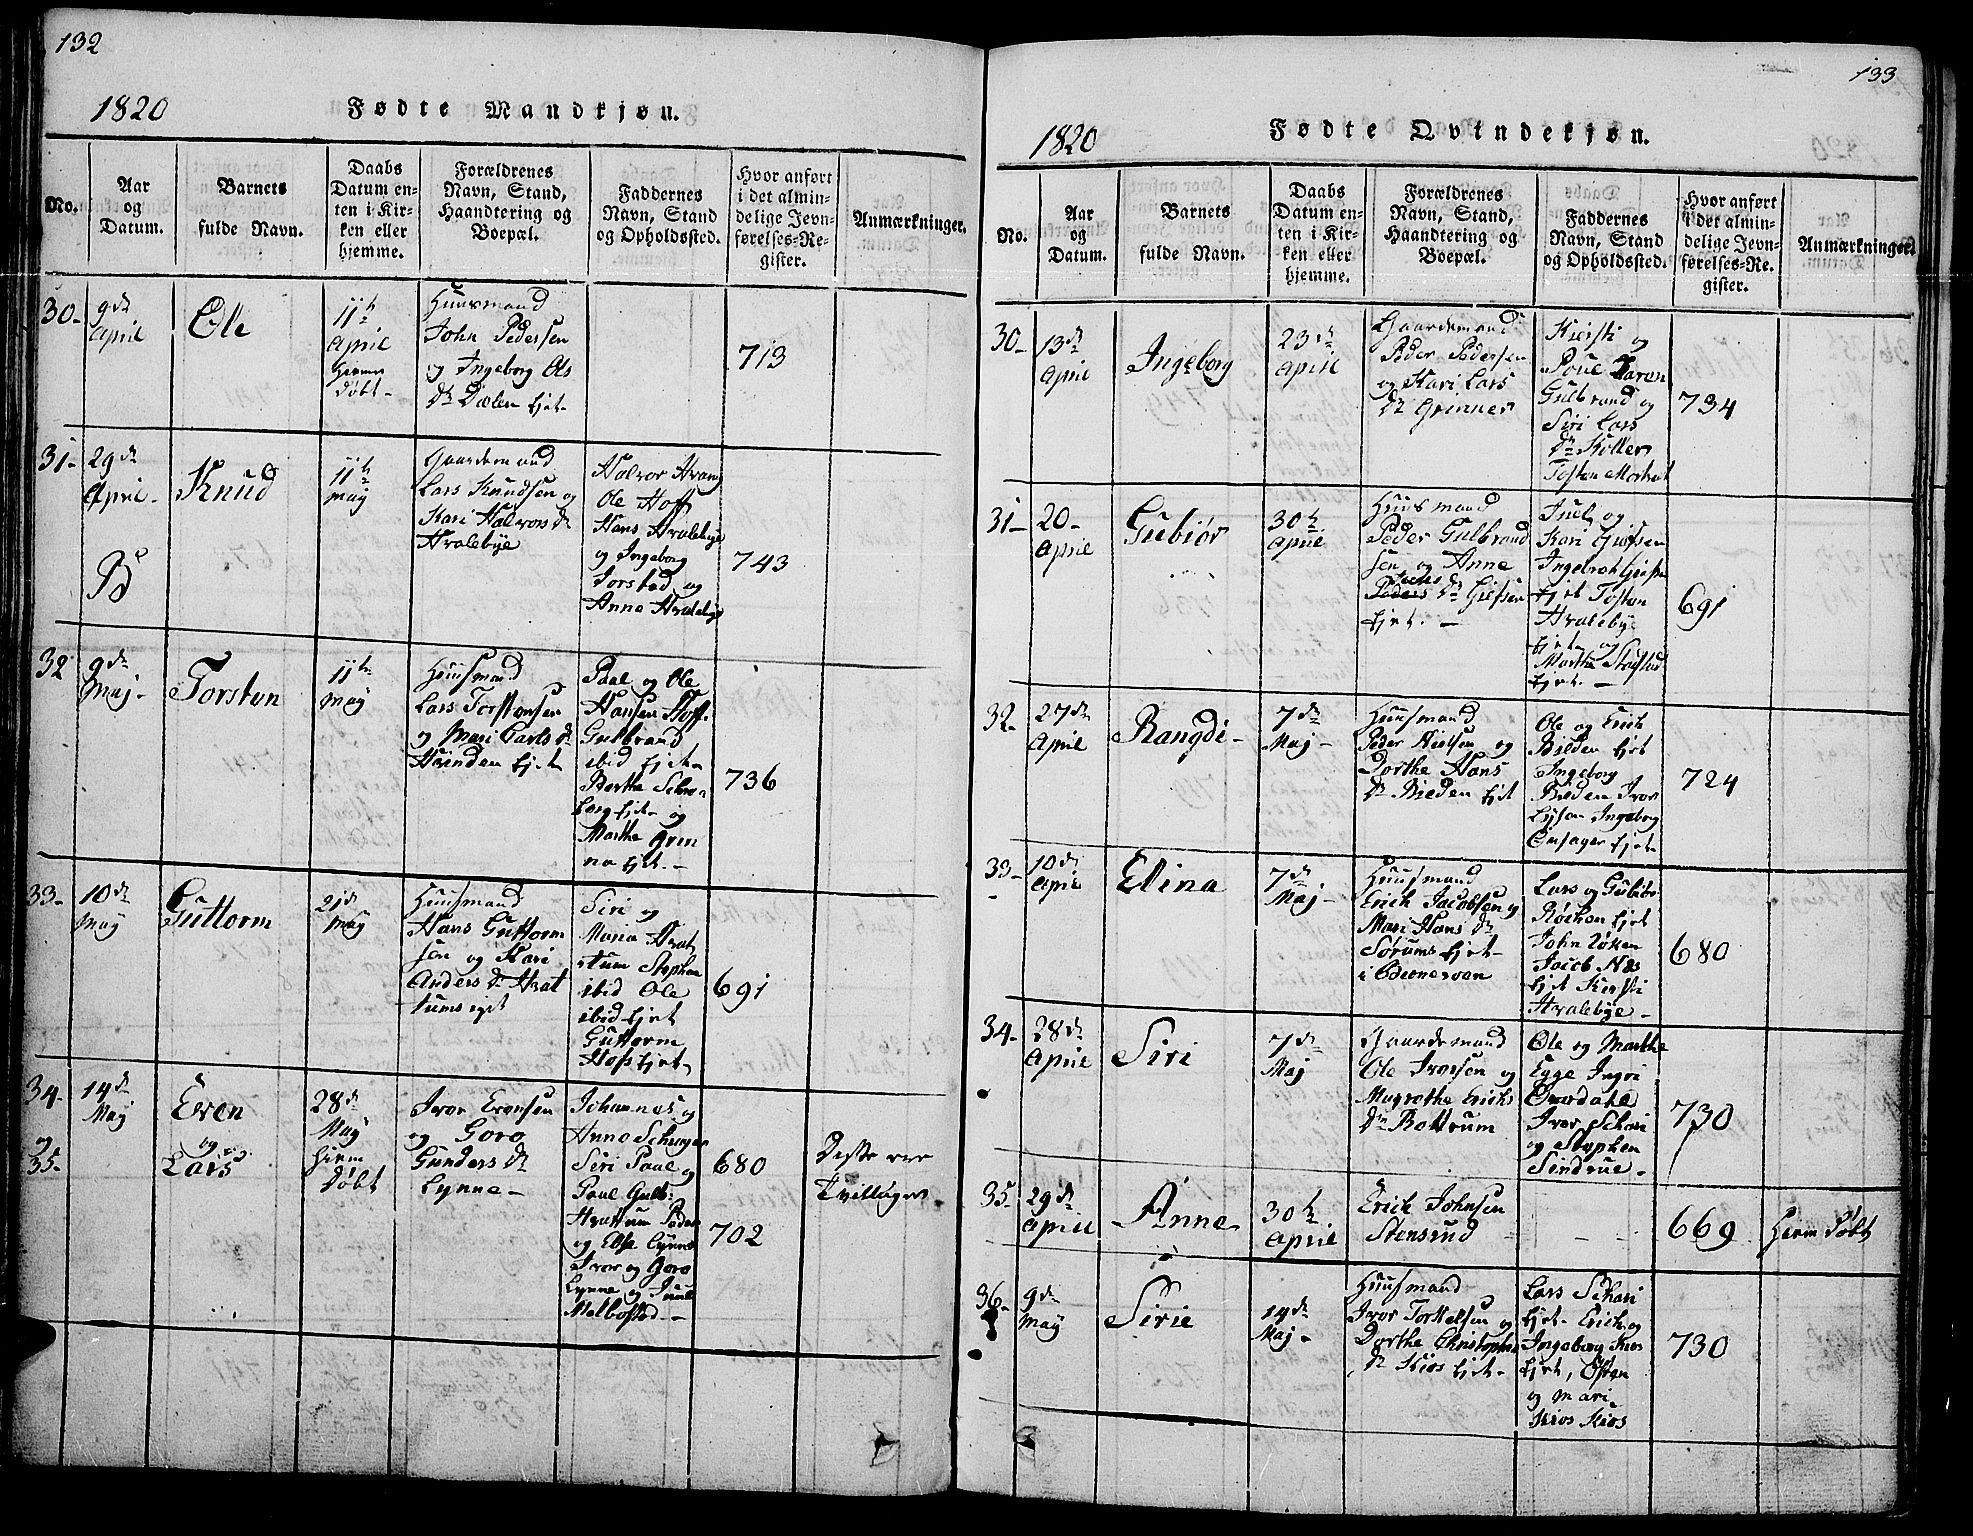 132
1820
Fødte Mandkjøn.
No.
Aar
og
Datum.
Barnets
fulde Navn.
Daabs
Datum en-
ten i Kir-
ken eller
hjemme.
Forældrenes
Navn, Stand,
Haandtering og
Boepæl.
Faddernes
Navn, Stand
og Opholdssted.
Hvor anført
i det almin-
delige Jevn-
førelses-Re-
gister.
Anmærkninger.
30-
9de
April
Ole
11te
April
hiem
døbt-
Huusmand
John Pedersen
og Ingeborg Ols
Dr Dælen Ejet-
713
31-
29de
April-
Knud
11te
may
Gaardemand
Lars Knudsen og
Kari Halvors Dr
Hvalebye
Halvor Hvam
Ole Hoff
Hans Hvalebye
og Ingeborg
Jorstad og
Anne Hvalebye
743
32
9de
Maj-
Torsten
11te
may
Huusmand
Lars Torstensen
og Mari Carls Dr
Hvinden Ejet
Paal og Ole
Hansen Hoff-
Gulbrand
ibid Ejet-
Berthe
Ejet- og
Marthe Grin
na Ejet.-
736
33-
10de
May
Guttorm
21de
may
Huusmand
Hans Guttorm
sen og Kari
Anders Dr Hvat
tums ejet
Siri og
Maria Hvat
tum Stephen
ibid Ole
ibid Ejet
Guttorm
Hofs Ejet-
691
34-
og
35-
14de
May
Even
og
Lars
28de
May
hiem
døbt
Iver Evensen
og Goro
Gunders Dr
Lynne-
Johannes og
Anne
Siri Paal og
Poul Gulb:
Hvattum Peder
og Else Lynne
Iver og Goro
Lynne og Juul
Melbostad-
680
702
Disse ere
Tvillinger
133
1820
Fødte Qvindekjøn.
No.
Aar
og
Datum.
Barnets
fulde Navn.
Daabs
Datum en-
ten i Kir-
ken eller
hjemme.
Forældrenes
Navn, Stand,
Haandtering og
Boepæl.
Faddernes
Navn, Stand
og Opholdssted.
Hvor anført
i det almin-
delige Jevn-
førelses-Re-
gister.
Anmærkninger.
30-
13de
April
Ingeborg
23de
April
Gaardemand
Peder Pedersen
og Kari Lars
Dr Grinner
Kiersti og
Poul Haren
Gulbrand og
Siri Lars
Dr
Tosten
734
31-
20-
April
Gubiør
30te
April
Huusmand
Peder Gulbrand
sen og Anne
Juels
Peders Dr Giefsen
Ejet.-
Juel og
Kari Giefsen
Ejet Tosten
Hvalebye
Ejet- og
Marthe
Ejet.-
691
32-
27de
April
Rangdi-
7de
Maj-
Huusmand
Peder Nielsen og
Dorthe Hans
Dr Bilden Ejet
Ole og Erich
Bilden Ejet
Ingeborg
Bilden Iver
Ingeborg
Onsager Ejet-
724
33-
10de
April
Elina
7de
Maj-
Huusmand
Erich Jacobsen og
Mari Hans Dr
Sørums Ejet-
i Odnesvan
Lars og Gubiør
Røchen Ejet
John
Jacob Næs
Ejet Kiersti
Hvalebye-
680
34-
28de
April
Siri
7de
Maj
Gaardemand
Ole Iversen og
Magrethe Erichs
Dr Bottrum
Ole og Marthe
Egge Ingri
Iver Schari
og Stephen
Sindrue-
730
35-
29de
April
Anne
30te
April
Erich Johnsen
Stensrud
669
Hiem døbt
36-
9de
May
Sirie
14de
Maj-
Huusmand
Iver Torkelsen og
Dorthe Christophers
Dr Kios Ejet-
Lars Schari
Ejet- Erich og
Ingeborg Kios
Ejet, Esten
og Mari
Kios Kios
730